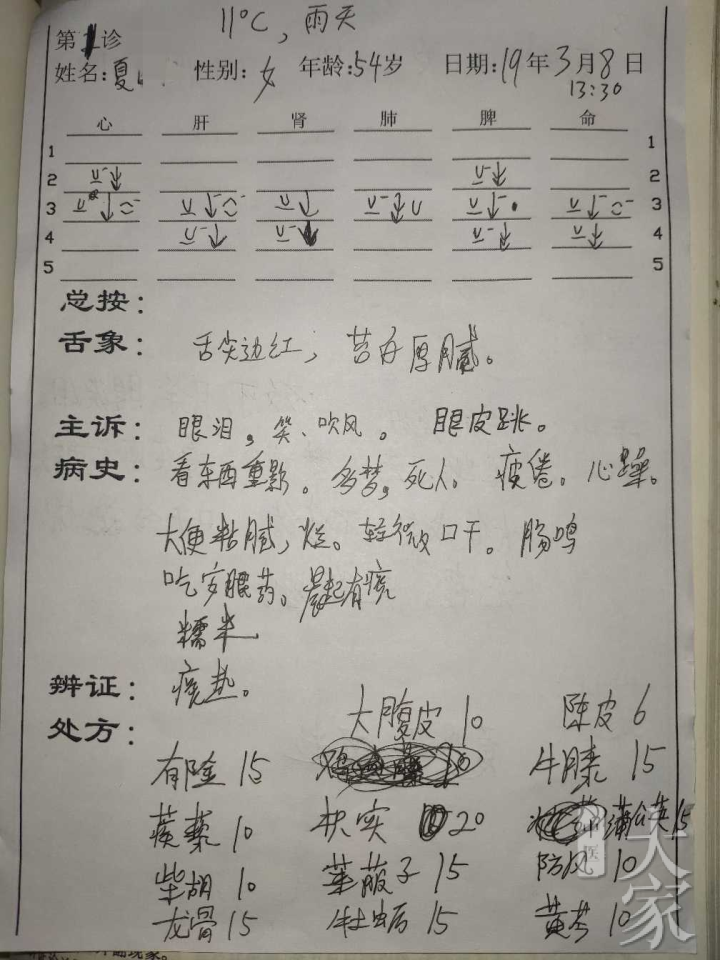 11°C，雨天
第1诊
姓名：夏 性别：女 年龄：54岁 日期：19年3月8日
13:30
心 肝 肾 肺 脾 命
1 1
2 2
3 3
4 4
5 5
总按：
舌象： 舌尖边红，苔 厚腻。
主诉： 眼泪，笑、吹风。 眼皮跳。
病史： 看东西重影。多梦，死人。 疲倦。心躁。
大便粘腻，烂。轻微口干。肠鸣
吃安眠药。晨起有痰
糯米
辨证： 痰热。
处方： 大腹皮 10 陈皮 6
郁金 15 牛膝 15
蒺藜 10 枳实 20 蒲公英 15
柴胡 10 莱菔子 15 防风 10
龙骨 15 牡蛎 15 黄芩 10
中医
大家